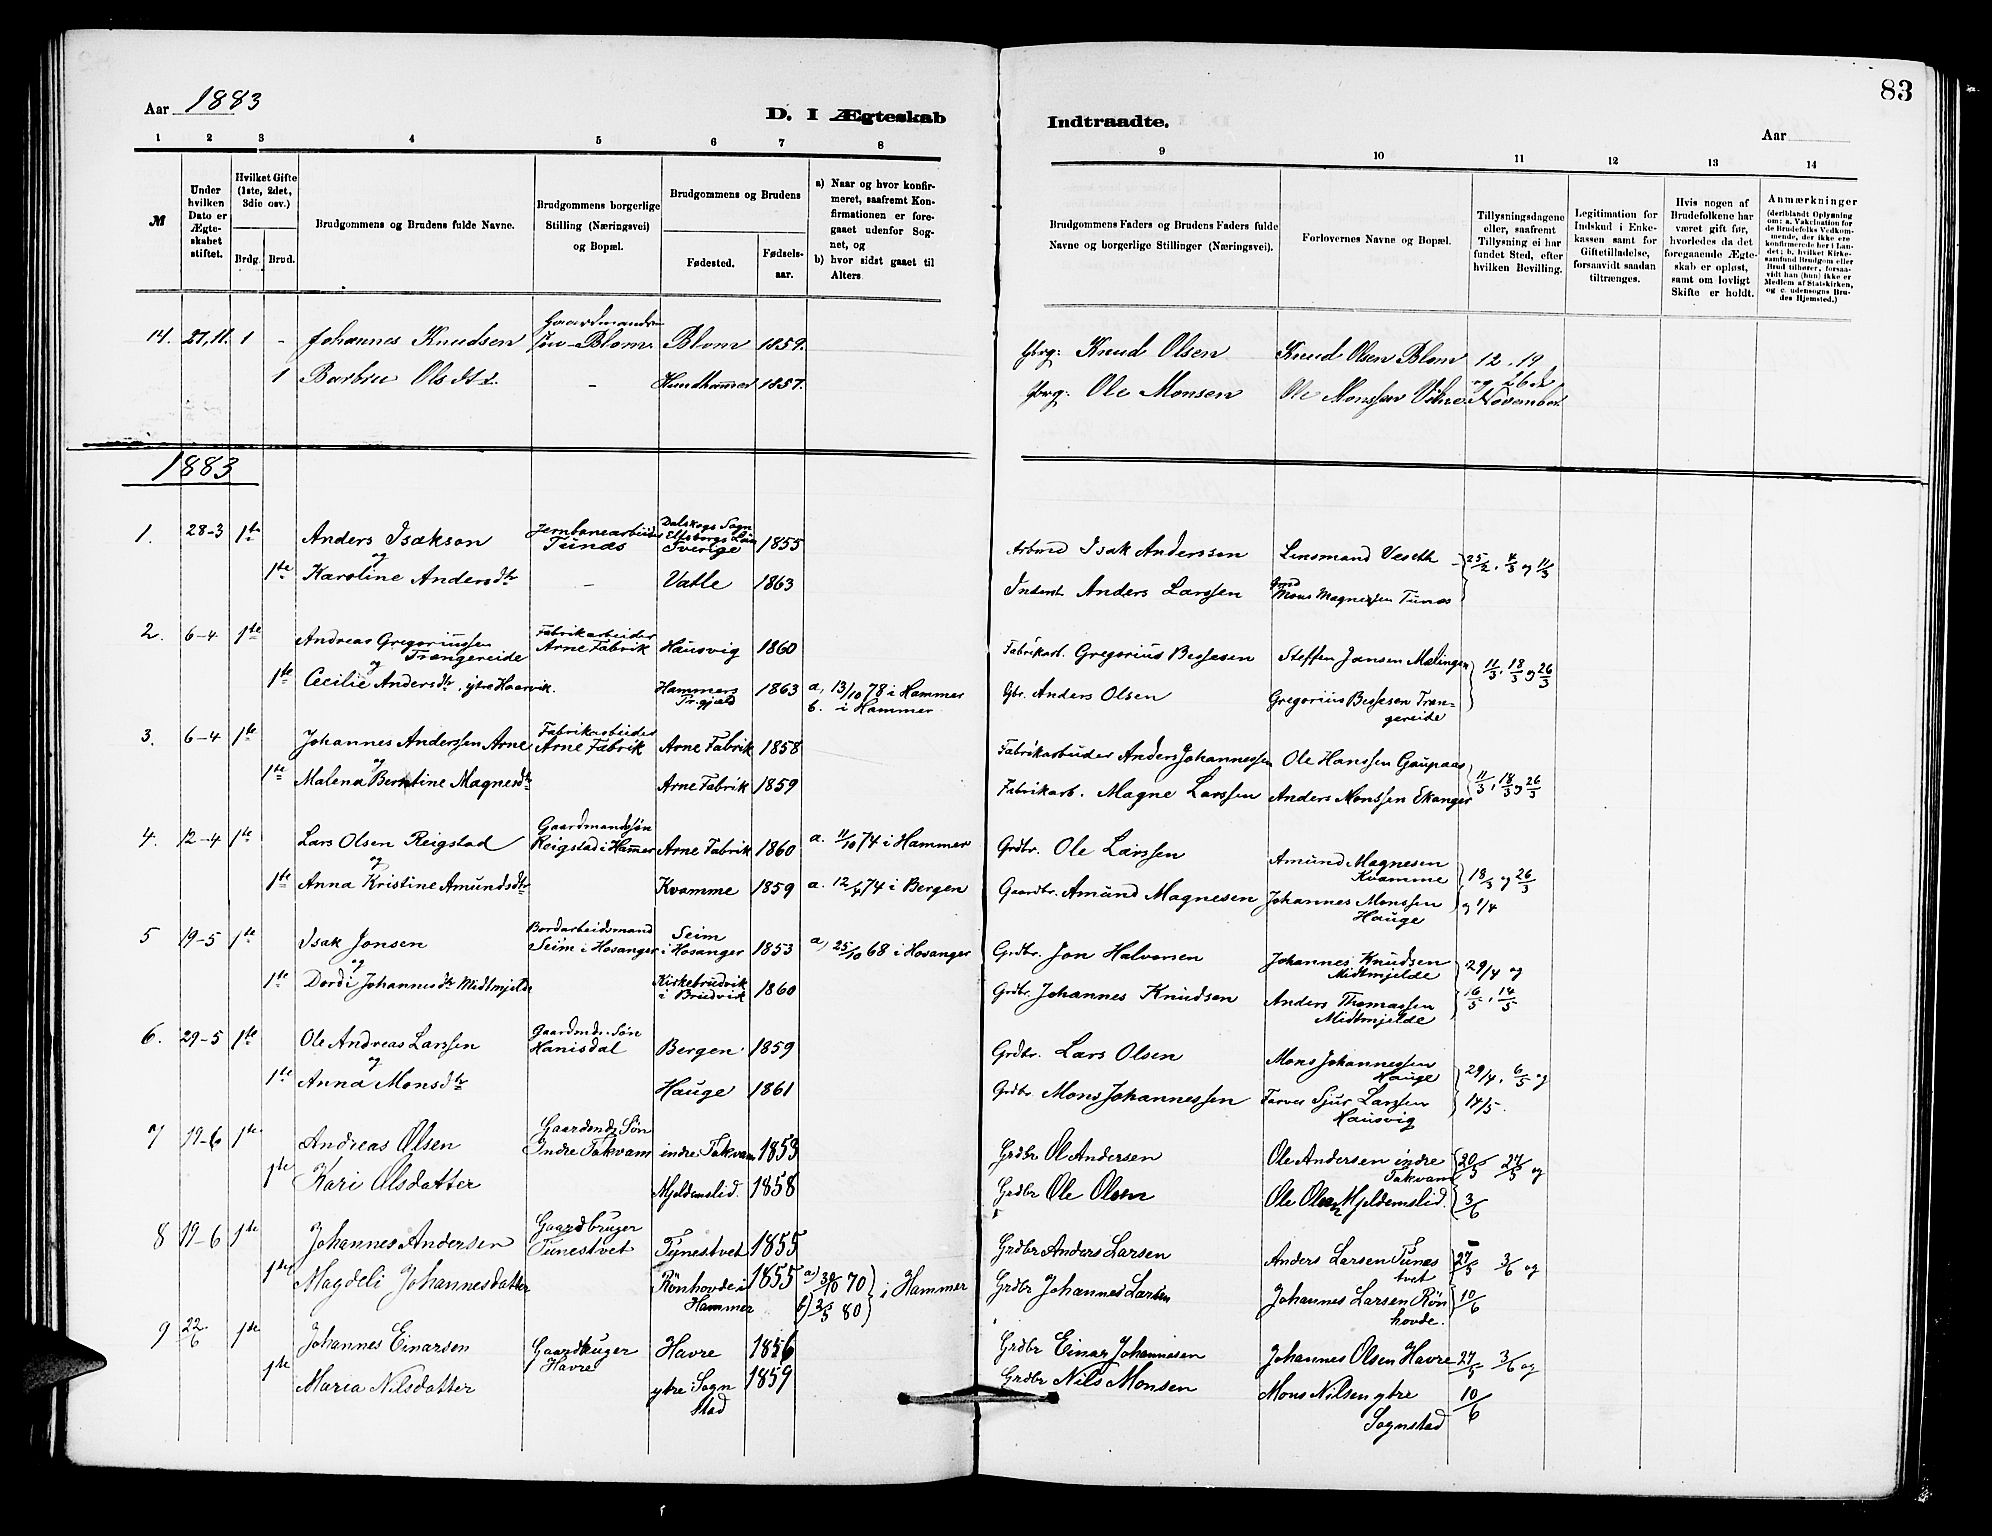 83
Aar 1883
D. I Ægteskab
Indtraadte.
Aar
1 2 3 4 5 6 7 8 9 10 11 12 13 14
M
Under hvilken Dato er Ægteskabet stiftet.
Hvilket Gifte (1ste, 2det, 3die osv.)
Brdg. Brud.
Brudgommens og Brudens fulde Navne.
Brudgommens borgerlige Stilling (Næringsvei) og Bopæl.
Brudgommens og Brudens
Fødested.
Fødselsaar.
a) Naar og hvor konfirmeret, saafremt Konfirmationen er foregaaet udenfor Sognet, og
b) hvor sidst gaaet til Alters.
Brudgommens Faders og Brudens Faders fulde Navne og borgerlige Stillinger (Næringsvei).
Forlovernes Navne og Bopæl.
Tillysningsdagene eller, saafremt Tillysning ei har fundet Sted, efter hvilken Bevilling.
Legitimation for Indskud i Enkekassen samt for Giftetilladelse, forsaavidt saadan tiltrænges.
Hvis nogen af Brudefolkene har været gift før, hvorledes da det foregaaende Ægteskab er opløst, samt om lovligt Skifte er holdt.
Anmærkninger
(deriblandt Oplysning om: a. Vakcination for de Brudefolks Vedkommende, der ikke ere konfirmerede her i Landet; b. hvilket Kirkesamfund Brudgom eller Brud tilhører, forsaavidt han (hun) ikke er Medlem af Statskirken, og c. udensogns Brudes Hjemsted.)
14. 27.11. 1 - Johannes Knudsen Gaardmandssøn Blom Blom 1859. Gbrg: Knud Olsen Knud Olsen Blom 12. 19
1 Barbra Olsdtr. - Hundhammer 1857. Gbrg: Ole Monsen Ole Monssen og 26de November
1883
1. 28-3 1ste Anders Isakson Jernbanearbeider Tunæs Dalskogs Sogn Elfsborgs Län Sverige 1855 Arbmd Isak Andersson Lensmand Veseth 25/2, 4/3 og 11/3
og
1ste Karoline Andersdtr - Vatle 1863 Inderst Anders Larssen Grmd Mons Magnessen Tunæs
2. 6-4 1ste Andreas Gregoriussen Trængereide Fabrikarbeider Arne Fabrik Hausvig 1860 Fabrikarb. Gregorius Bessesen Steffen Jansen Mælingen 11/3, 18/3 og 26/3
og
1ste Cecilie Andersdtr, ytre Haarvik. Hammers Pr.gjæld 1863 a, 13/10 78 i Hammer b. i Hammer Gbr. Anders Olsen Gregorius Bessesen Trængereide
3. 6-4 1ste Johannes Anderssen Arne Fabrikarbeider Arne Fabrik Arne Fabrik 1858 Fabrikarbeider Anders Johannessen Ole Hanssen Gaupaas 11/3, 18/3 og 26/3
og
1ste Malena Berntine Magnesdtr Arne Fabrik 1859 Fabrikarb. Magne Larssen Anders Monssen Ekanger
4. 12-4 1ste Lars Olsen Reigstad Gaardmandssøn Reigstad i Hammer Arne Fabrik 1860 a. 11/10 74 i Hammer Grdbr. Ole Larssen Amund Magnesen Kvamme 18/3 og 26/3
og
1ste Anna Kristine Amundsdtr Kvamme 1859 a. 12/4 74 i Bergen Gaardbr. Amund Magnesen Johannes Monssen Hauge og 1/4
5 19-5 1ste Isak Jonsen Bordarbeidsmand Seim i Hosanger Seim i Hosanger 1853 a, 25/10 68 i Hosanger Grdbr. Jon Halvorsen Johannes Knudsen Midtmjelde 29/4 og
og
1ste Dordi Johannesdtr Midtmjelde Kirkebrudvik i Brudvik 1860 Grdbr. Johannes Knudsen Anders Thomassen Midtmjelde 16/5, 14/5
6. 29-5 1ste Ole Andreas Larssen Gaardmds. Søn Hanisdal Bergen 1859 Grdbr. Lars Olsen Mons Johannessen Hauge 29/4, 6/5 og
og
1ste Anna Monsdtr Hauge 1861 Grdbr. Mons Johannessen Farver Sjur Larssen Hausvig 14/5.
7 19-6 1ste Andreas Olsen Gaardmds Søn Indre Takvam indre Takvam 1853 Grdbr Ol Andersen Ole Andersen indre Takvam 20/5 27/5 og
1ste Kari Olsdatter Mjeldemslid. 1858 Grdbr Ole Olsen Ole Olsen Mjeldemslid. 3/6
8 19-6 1ste Johannes Andersen Gaardbruger Tunestvet Tynestvet 1855 Grdbr Anders Larsen Anders Larsen Tunestvet 27/5 3/6 og
1ste Magdeli Johannesdatter Rönhovde i Hammer 1855 a) 70 b) 2/5 80 i Hammer Grdbr Johannes Larsen Johannes Larsen Rönhovde. 10/6
9 22/6 1ste Johannes Einarsen Gaardbruger Havre Havre 1856 Grdbr Einar Johannesen Johannes Olsen Havre 27/5 3/6 og
1ste Maria Nilsdatter ytre Sognstad 1859 Grdbr Nils Monsen Mons Nilsen ytre Sognstad 10/6